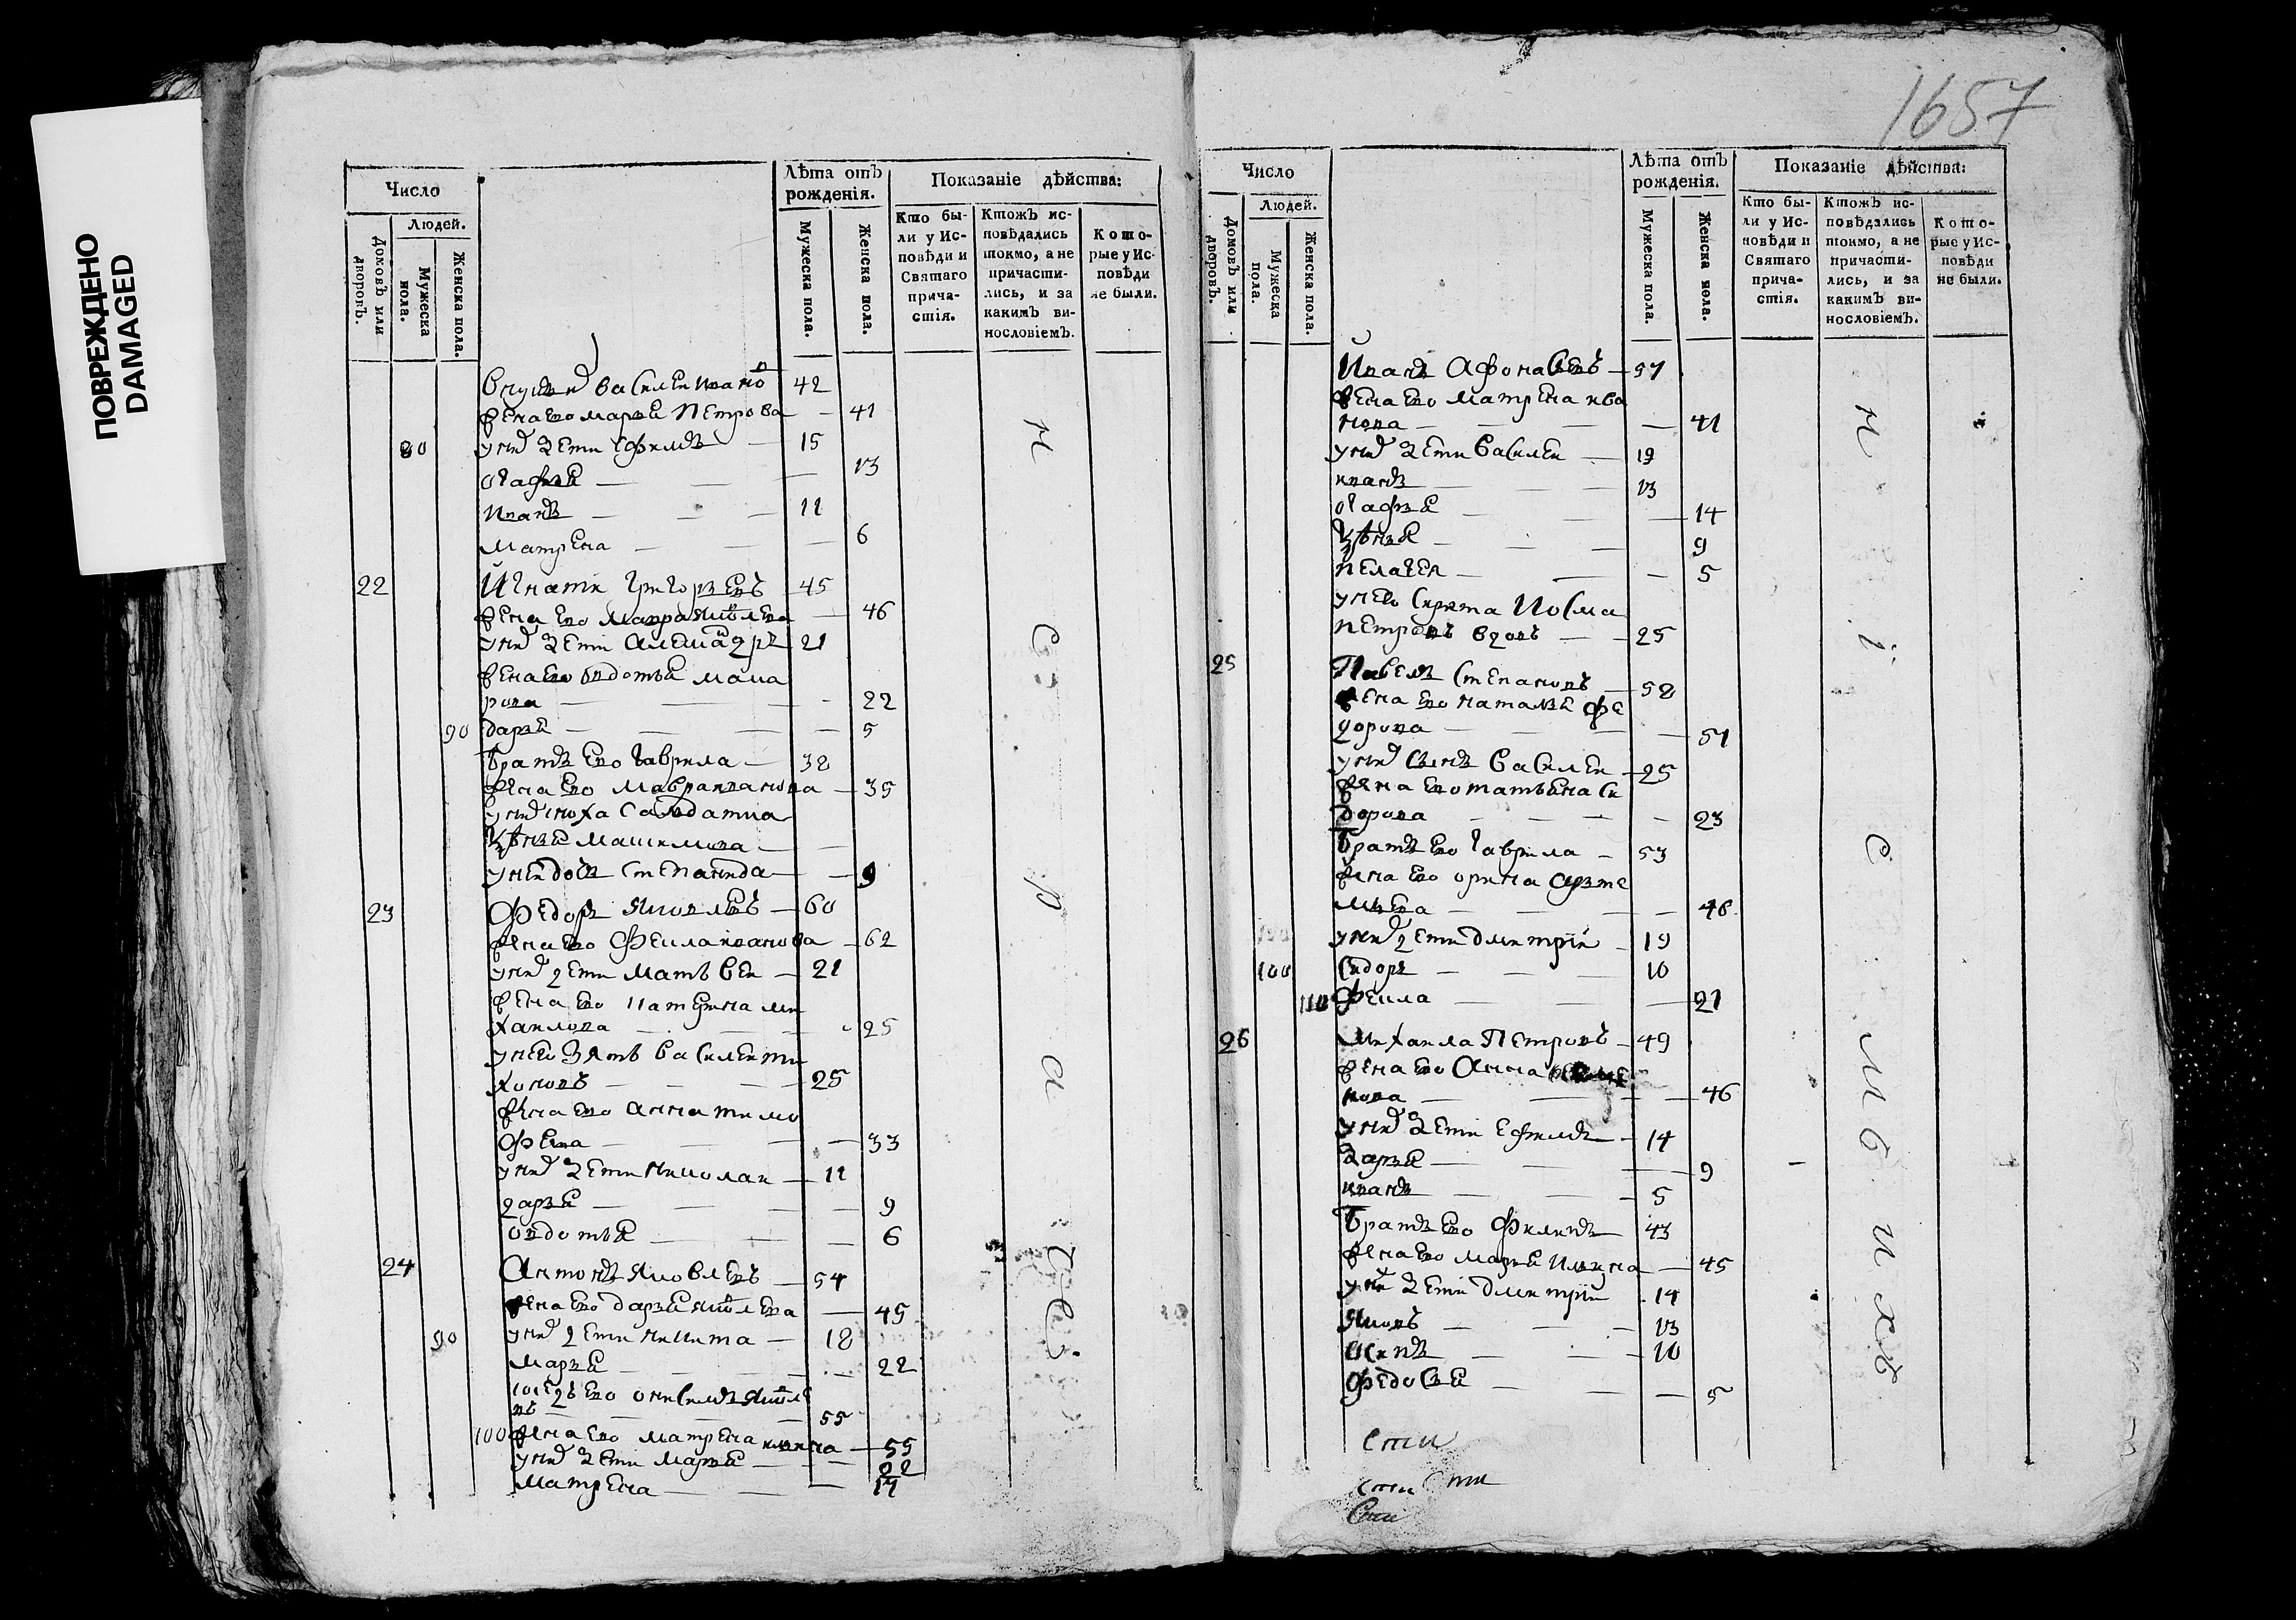 ПОВРЕЖДЕНО
DAMAGED
1657
Число
Людей.
Домовъ или дворовъ.
Мужеска пола.
Женска пола.
Лѣта отъ рожденія.
Мужеска пола.
Женска пола.
Показаніе дѣйства:
Кто бы-
ли у Ис-
повѣди и
Святаго
прича-
стія.
Ктожъ ис-
повѣдались
токмо, а не
причасти-
лись, и за
какимъ ви-
нословіемъ.
Кото-
рые у Ис-
повѣди
не были.
Василеи Ивано 42
жена ево марья петрова — 41
80 у них дети ефимъ — 15
огафья — 13
Иванъ — 11
матрена — 6
22 Игнати григорьевъ 45
жена ево мавра яковлева — 46
у них дети александръ 21
жена ево овдотья мака
рова — 22
90 дарья — 5
братъ ево гаврила — 38
жена ево мавра иванова — 35
у них сноха салдатка
ксѣнья максимова —
дочь степанида — 9
23 Федоръ яковлевъ — 60
жена ево фекла иванова — 62
у них дети матвеи — 21
жена ево катерина ми
хаилова — 25
у нево зять василеи ти
хоновъ — 25
жена ево анна тимо
фева — 33
у них дети николаи — 11
дарья — 9
овдотья — 6
24 Антонъ яковлевъ — 54
жена ево дарья яковлева — 45
90 у них дети никита — 18
марья — 22
соседъ ево онисимъ яковле
въ — 55
100 жена ево матрена — 55
у них дети марья — 22
матрена — 14
к с р а с
Число
Людей.
Домовъ или дворовъ.
Мужеска пола.
Женска пола.
Лѣта отъ рожденія.
Мужеска пола.
Женска пола.
Показаніе дѣйства:
Кто бы-
ли у Ис-
повѣди и
Святаго
прича-
стія.
Ктожъ ис-
повѣдались
токмо, а не
причасти-
лись, и за
какимъ ви-
нословіемъ.
Кото-
рые у Ис-
повѣди
не были.
Иванъ Афонасьевъ — 57
жена ево матрена ива
нова — 41
у них дети василеи — 19
иванъ — 13
огафья — 14
ксѣнья — 9
пелагея — 5
у нево козма
петровъ вдовъ — 25
25 Павелъ степановъ — 58
жена ево наталья фе
дорова — 57
у них сынъ василеи — 25
жена ево татьяна си
дорова — 23
братъ ево гаврила — 53
жена ево орина арте
мьева — 48
у них дети дмитріи — 19
100 сидоръ — 10
110 фекла — 21
26 михаила Петровъ — 49
жена ево Анна
нова — 46
у них дети ефимъ — 14
дарья — 9
иванъ — 5
братъ ево филипъ — 43
жена ево марья ильина — 45
у них дети дмитріи 14
яковъ — 13
осипъ — 10
федосья — 5
н і с м ь и хъ
сти
сти сти
сти